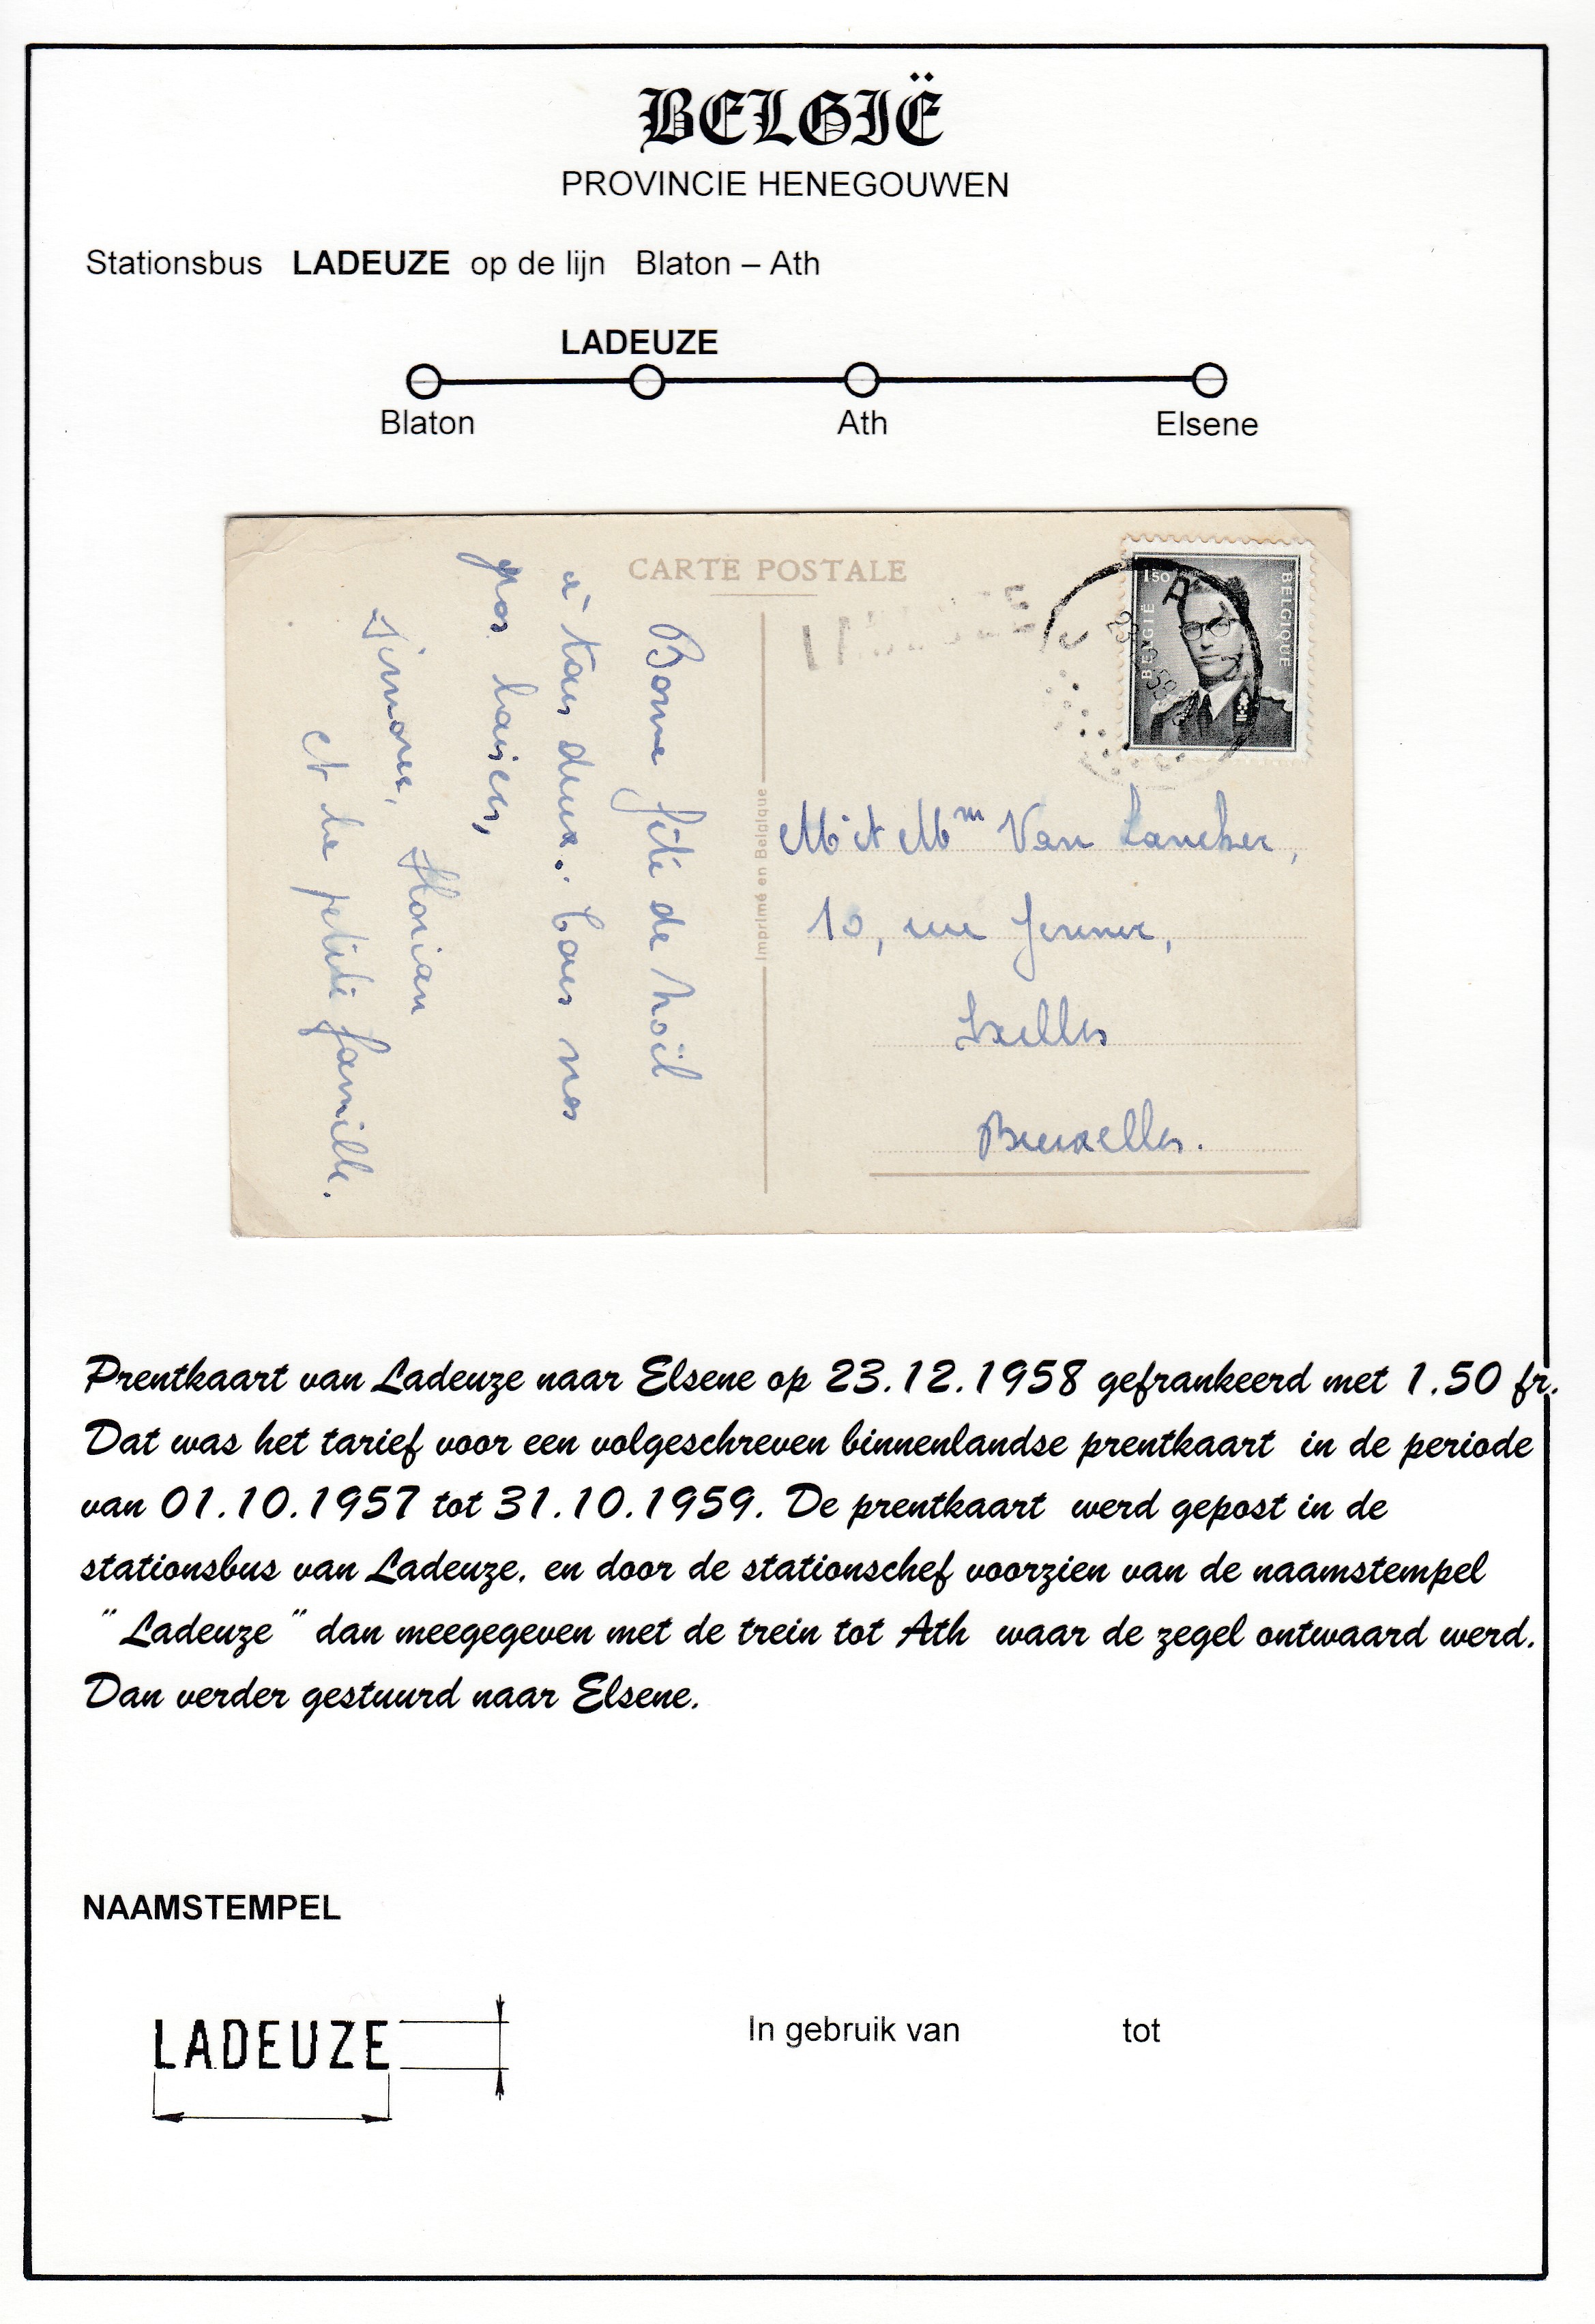 BELGIË
PROVINCIE HENEGOUWEN
Stationsbus LADEUZE op de lijn Blaton – Ath
LADEUZE
Blaton Ath Elsene
CARTE POSTALE
1F50
BELGIË
BELGIQUE
A
23
58
Imprimé en Belgique
Bonne fête de Noël
à tous deux. Tous nos
gros baisers,
Simone, Florian
et la petite famille.
Mr et Mm Van Lancker,
10, rue Jenner,
Ixelles
Bruxelles.
Prentkaart van Ladeuze naar Elsene op 23.12.1958 gefrankeerd met 1.50 fr.
Dat was het tarief voor een volgeschreven binnenlandse prentkaart in de periode
van 01.10.1957 tot 31.10.1959. De prentkaart werd gepost in de
stationsbus van Ladeuze, en door de stationschef voorzien van de naamstempel
" Ladeuze " dan meegegeven met de trein tot Ath waar de zegel ontwaard werd.
Dan verder gestuurd naar Elsene.
NAAMSTEMPEL
LADEUZE
In gebruik van tot